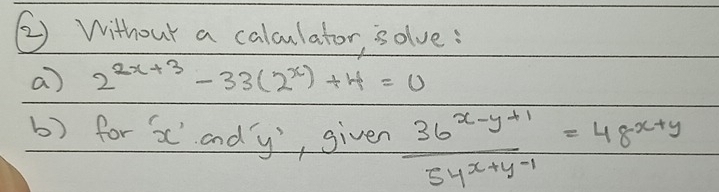 ② Without a calculator, solve:
a) 2^{2x+3} - 33(2^x) + 4 = 0
b) for 'x' and 'y', given \frac{36^{x-y+1}}{54^{x+y-1}} = 48^{x+y}